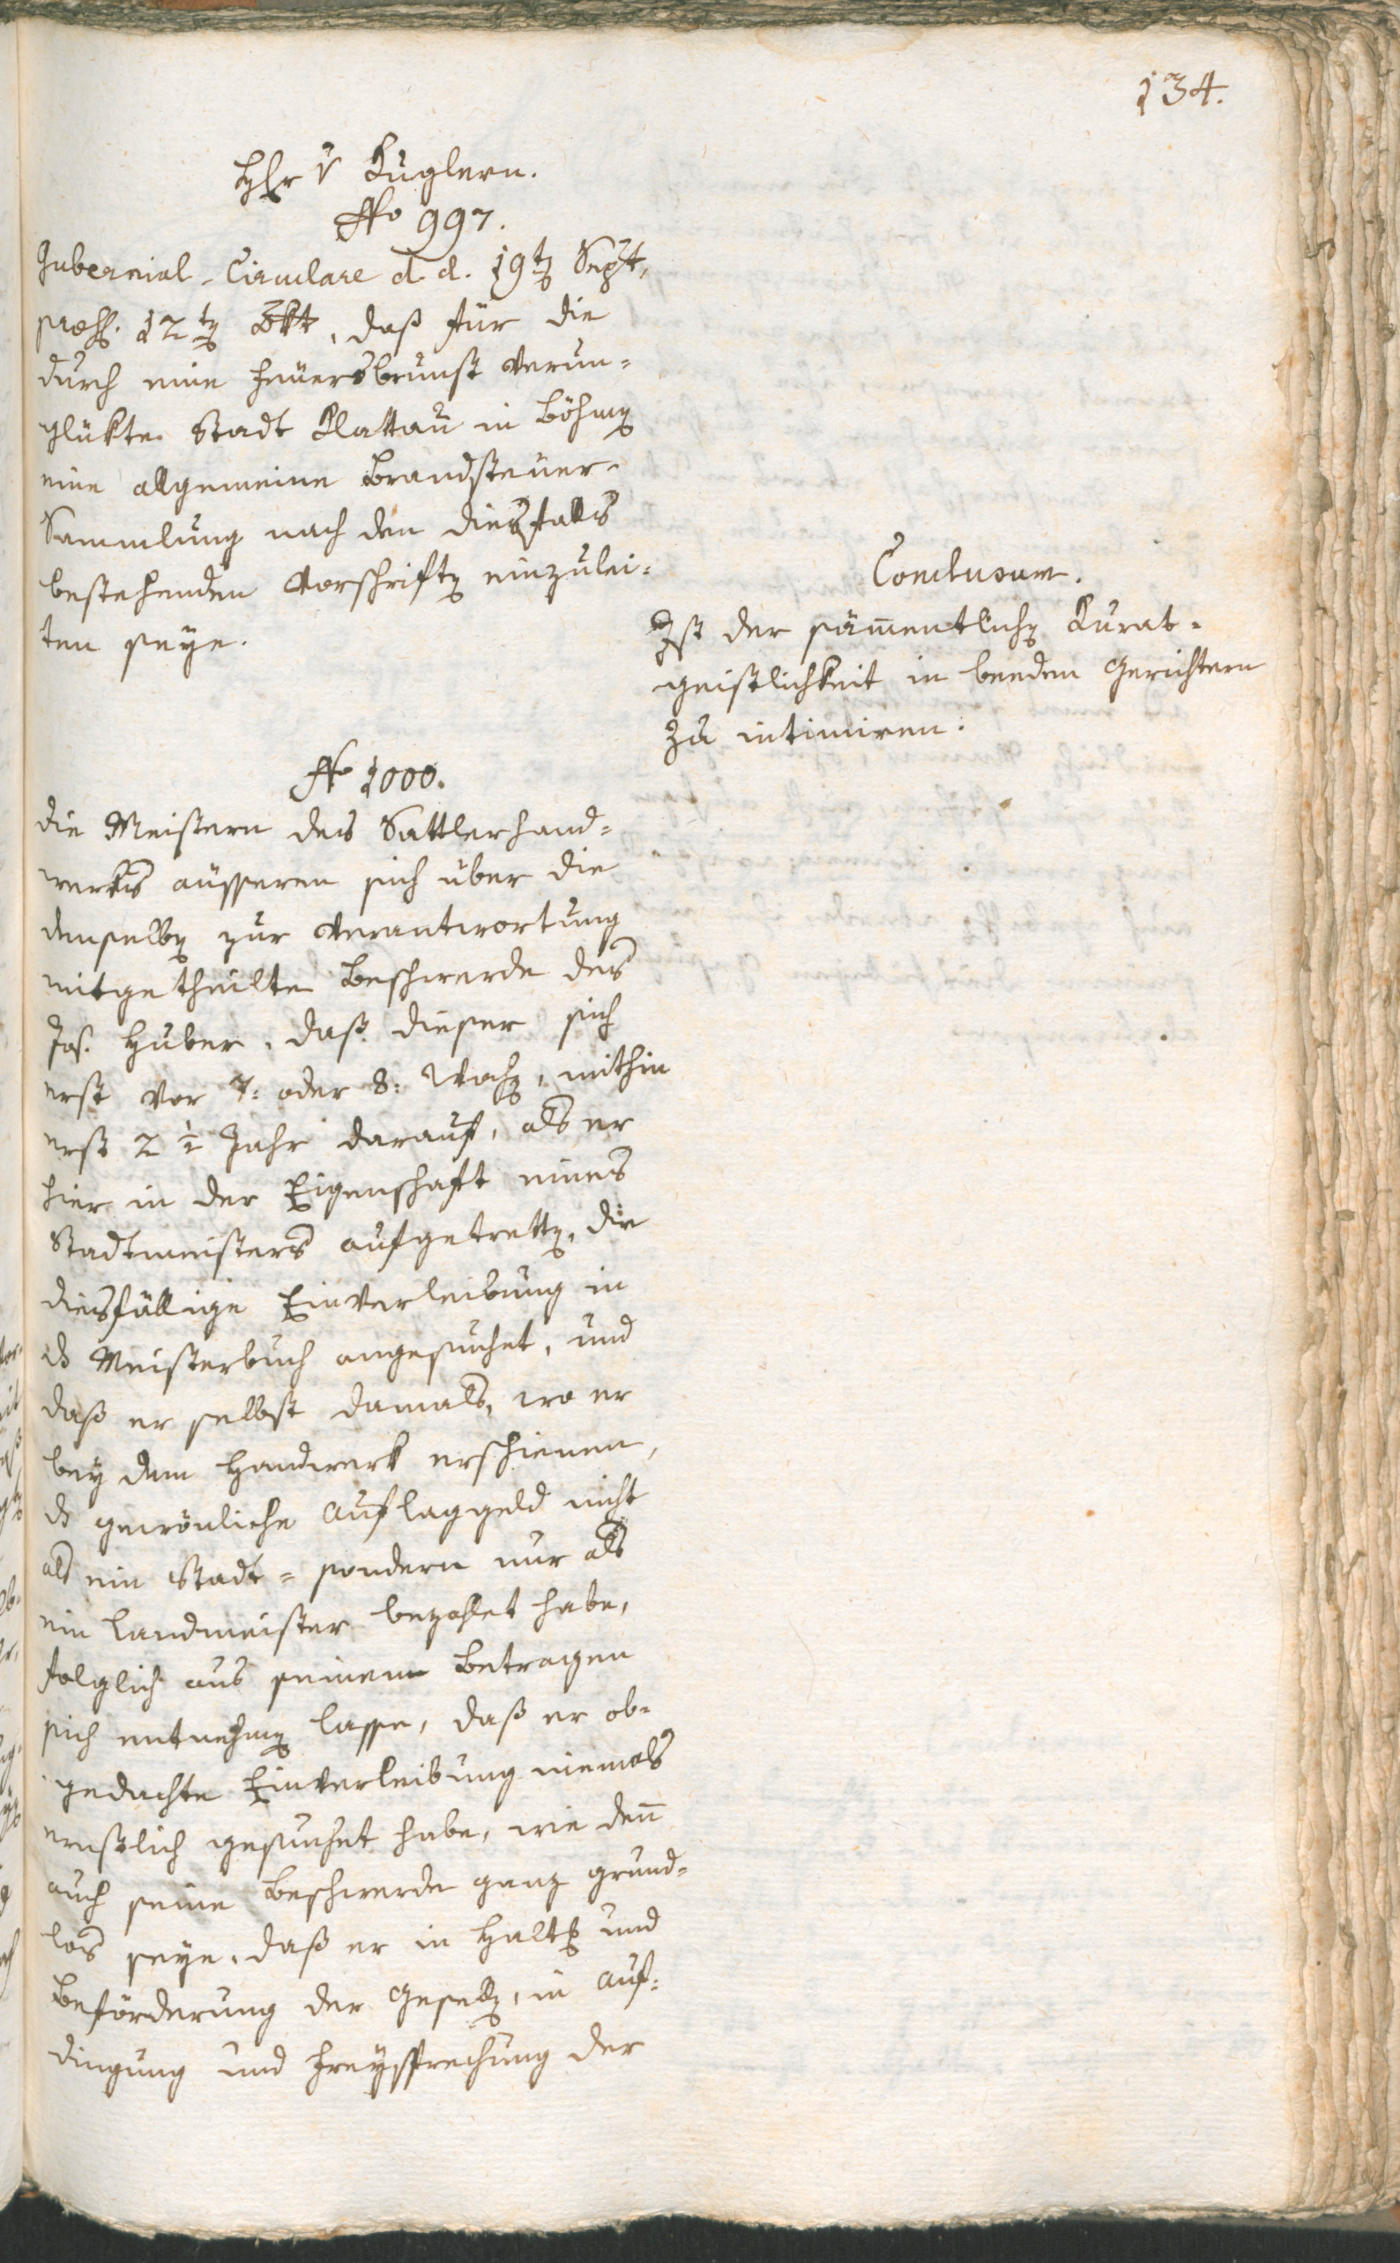 134.
Hr v Kuglern.
No 997.
Gubernial-Circulare d. d. 19ten Sept,
præs. 12ten 8bt, daß für die
durch eine Feuersbrunst verun=
glükte Stadt Klattau in Böhmen
eine allgemeine Brandsteuer-
Sammlung nach den diesfalls
bestehenden Vorschriften einzulei=
ten seye.
Conclusum.
Ist der sämmentlichen Kurat=
geistlichkeit in beeden Gerichtern
zu intimiren.
No 1000.
Die Meistern des Sattlerhand=
werks äusseren sich über die
denselben zur Verantwortung
mitgetheilte Beschwerde des
Jos. Huber, daß dieser sich
erst vor 7: oder 8: Wochen, mithin
erst 2 1/2 Jahr darauf, als er
hier in der Eigenschaft eines
Stadtmeisters aufgetretten, die
diesfällige Einverleibung in
das Meisterbuch angesuchet, und
daß er selbst damals, wo er
bey dem Handwerk erschienen,
das gewönliche Auflaggeld nicht
als ein Stadt= sondern nur als
ein Landmeister bezahlet habe,
folglich aus seinem Betragen
sich entnehmen lasse, daß er ob-
gedachte Einverleibung niemals
ernstlich gesuchet habe, wie denn
auch seine Beschwerde ganz grund=
los seye, daß er in Haltung und
Beförderung der Gesellen, in Auf=
dingung und Freysprechung der